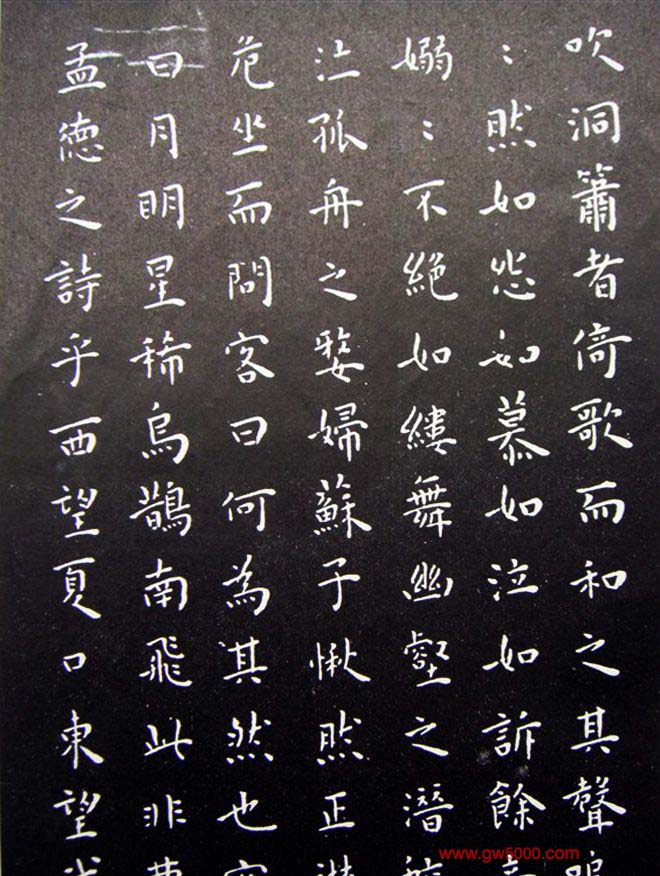 吹洞簫者倚歌而和之其聲嗚
：然如怨如慕如泣如訴餘音
嫋：不絕如縷舞幽壑之潛蛟
泣孤舟之嫠婦蘇子愀然正襟
危坐而問客曰何為其然也客
曰月明星稀烏鵲南飛此非曹
孟德之詩乎西望夏口東望武
www.gw5000.com